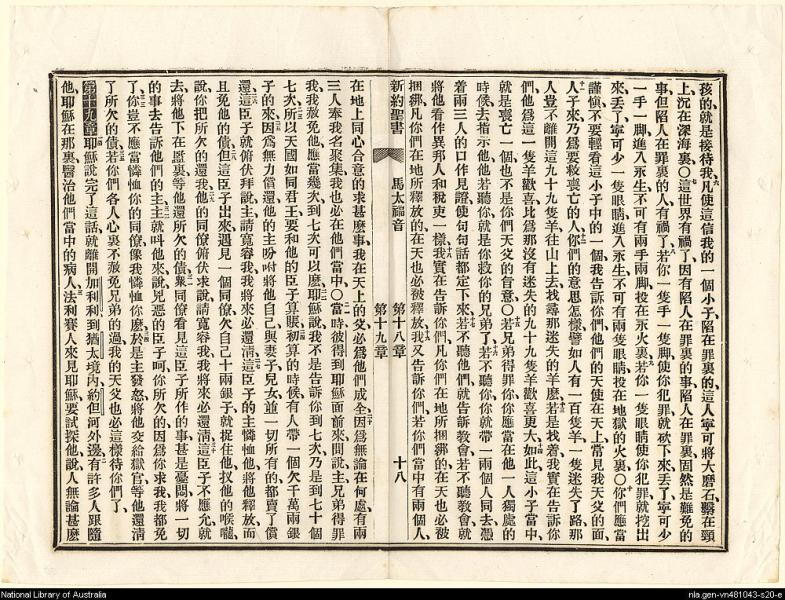 孩的就是接待我凡使這信我的一個小子陷在罪裏的這人寧可將大磨石繫在頸
上沉在深海裏〇這世界有禍了因有陷人在罪裏的事陷人在罪裏固然是難免的
事但陷人在罪裏的人有禍了若你一隻手一隻脚使你犯罪就砍下來丟了寧可少
一手一脚進入永生不可有兩手兩脚投在永火裏若你一隻眼睛使你犯罪就挖出
來丟了寧可少一隻眼睛進入永生不可有兩隻眼睛投在地獄的火裏〇你們應當
謹愼不要輕看這小子中的一個我告訴你們他們的天使在天上常見我天父的面
人子來乃爲要救喪亡的人你們的意思怎樣譬如人有一百隻羊一隻迷失了路那
人豈不離開這九十九隻羊往山上去找尋那迷失的羊麽若是找着我實在告訴你
們他爲這一隻羊歡喜比爲那沒有迷失的九十九隻羊歡喜更大如此這小子當中
就是喪亡一個也不是你們天父的旨意〇若兄弟得罪你你應當在他一人獨處的
時候去指示他他若聽你就是你救你的兄弟了若不聽你你就帶一兩個人同去憑
着兩三人的口作見證使句句話都定下來若不聽他們就告訴教會若不聽教會就
將他看作異邦人和稅吏一樣我實在告訴你們凡你們在地所捆綁的在天也必被
捆綁凡你們在地所釋放的在天也必被釋放我又告訴你們若你們當中有兩個人
新約聖書 馬太福音 第十八章 第十九章 十八
在地上同心合意的求甚麽事我在天上的父必爲他們成全因爲無論在何處有兩
三人奉我名聚集我也必在他們當中〇當時彼得到耶穌面前來問說主兄弟得罪
我我赦免他應當幾次到七次可以麽耶穌說我不是告訴你到七次乃是到七十個
七次所以天國如同君王要和他的臣子算賬初算的時候有人帶一個欠千萬兩銀
子的來因爲無力償還他的主吩咐將他自己與妻子兒女並一切所有的都賣了償
還這臣子就俯伏拜說主請寬容我我將來必還淸這臣子的主憐恤他將他釋放而
且免他的債但這臣子出來遇見一個同僚欠自己十兩銀子就捉住他扠他的喉嚨
說你把所欠的還我他的同僚俯伏求說請寬容我我將來必還淸這臣子不應允就
去將他下在監裏等他還所欠的債衆同僚看見這臣子所作的事甚是憂悶將一切
的事去告訴他們的主主就叫他來說兇惡的臣子呵你所欠的因爲你求我我都免
了你豈不應當憐恤你的同僚像我憐恤你麽於是主發怒將他交給獄官等他還淸
了所欠的債若你們各人心裏不赦免兄弟的過我的天父也必這樣待你們了
第十九章耶穌說完了這話就離開加利利到猶太境內約但河外邊有許多人跟隨
他耶穌在那裏醫治他們當中的病人法利賽人來見耶穌要試探他說人無論甚麽
National Library of Australia
nla.gen-vn481043-s20-e